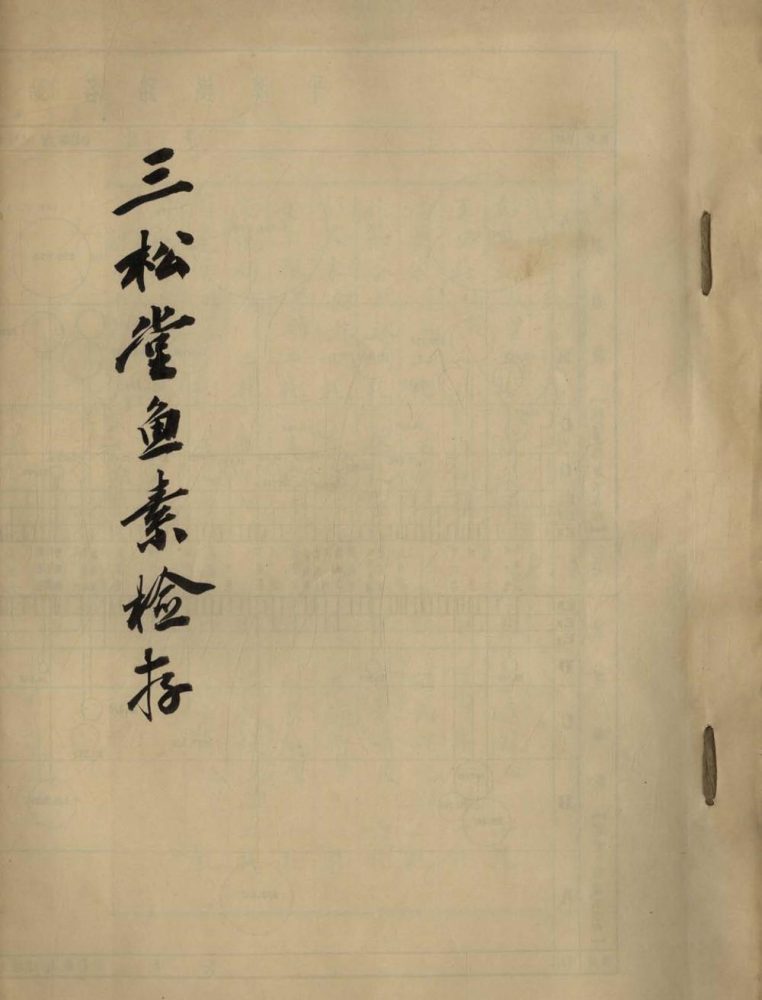 三松堂鱼素检存